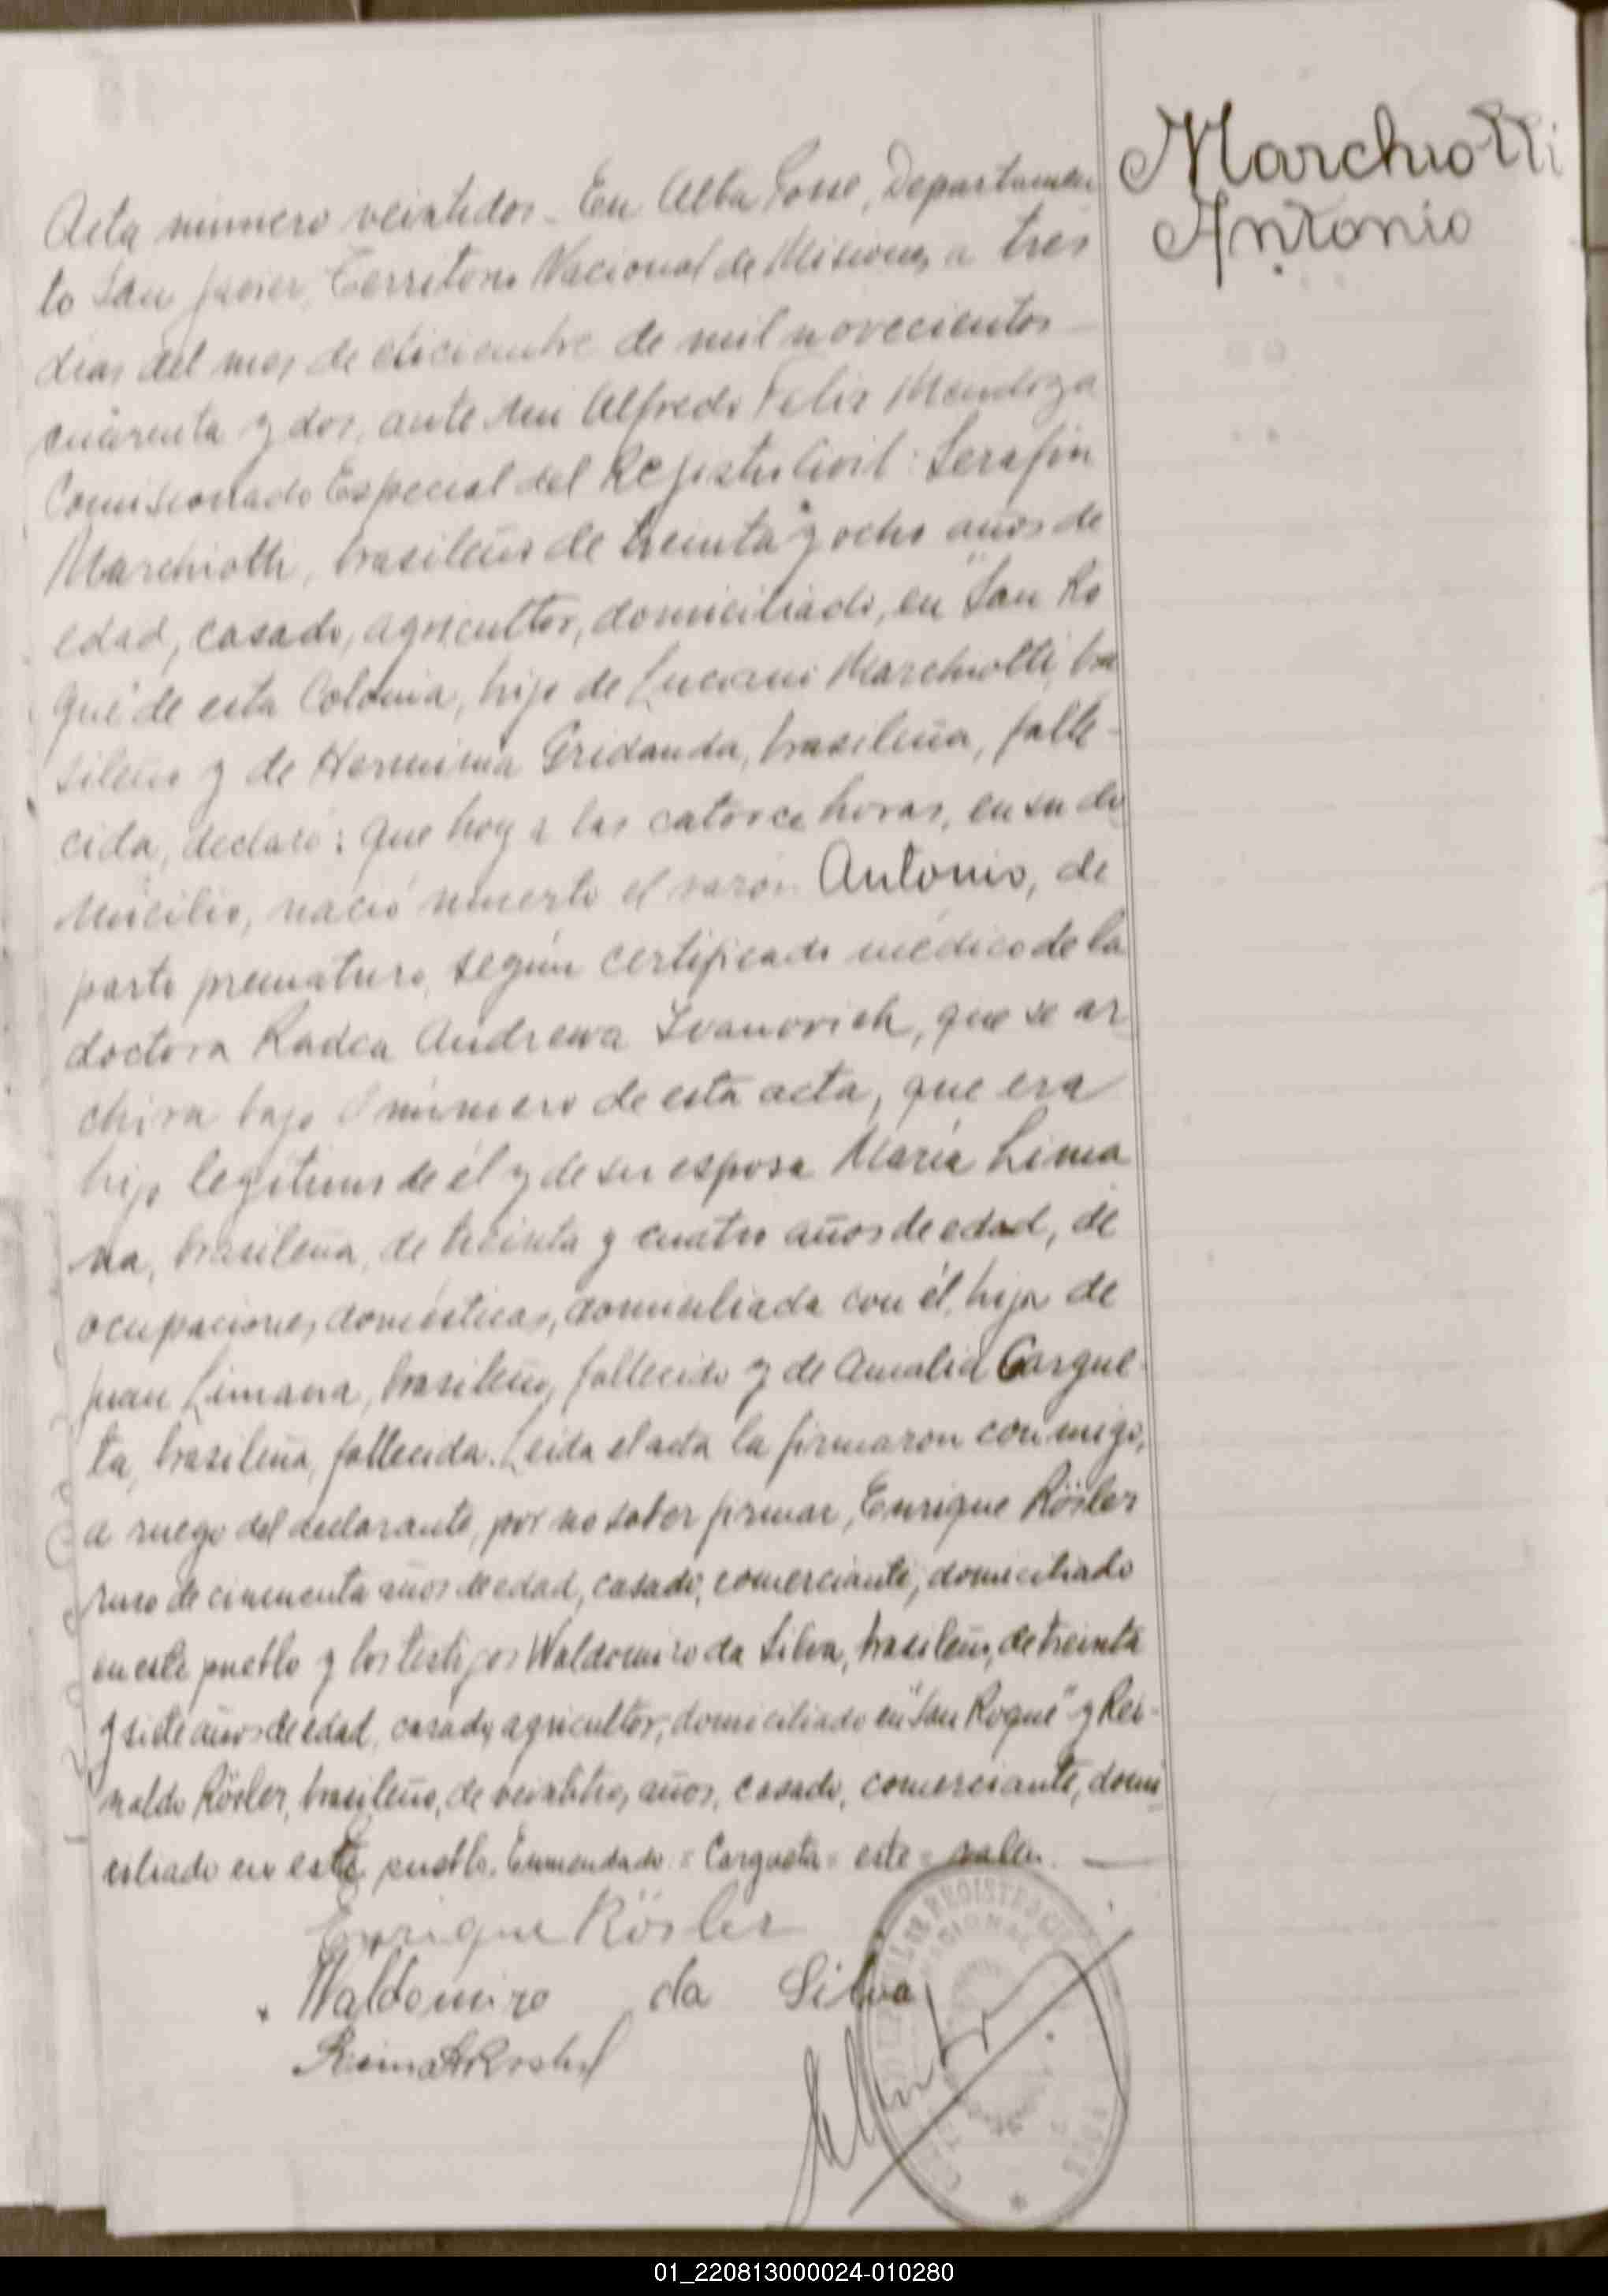 Marchiotti
Antonio
Acta número veintidos. En Alba Posse, Departamen
to San Javier, Territorio Nacional de Misiones, a tres
días del mes de diciembre de mil novecientos
cuarenta y dos, ante mi Alfredo Felix Mendoza
Comisionado Especial del Registro Civil: Serafin
Marchiotti, brasileño de treinta y ocho años de
edad, casado, agricultor, domiciliado, en "San Ro
que" de esta Colonia, hijo de Luciano Marchiotti, bra
sileño y de Herminia Gridanda, brasileña, falle-
cida, declaró: que hoy a las catorce horas, en su do
micilio, nació muerto el varón Antonio, de
parto prematuro, según certificado médico de la
doctora Radca Andrewa Ivanovich, que se ar
chiva bajo el número de esta acta, que era
hijo legítimo de él y de su esposa María Lima
na, brasileña, de treinta y cuatro años de edad, de
ocupaciones domésticas, domiciliada con él, hija de
Juan Limana, brasileño, fallecido y de Amalia Cargue-
ta, brasileña, fallecida. Leída el acta la firmaron conmigo,
a ruego del declarante, por no saber firmar, Enrique Rösler
ruso de cincuenta años de edad, casado, comerciante, domiciliado
en este pueblo y los testigos Waldomiro da Silva, brasileño, de treinta
y siete años de edad, casado, agricultor, domiciliado en "San Roque" y Rei-
naldo Rösler, brasileño, de veintitres años, casado, comerciante, domi
ciliado en este pueblo. Enmendado = Cargueta = este = valen.
Enrique Rösler
Waldomiro da Silva
01_220813000024-010280